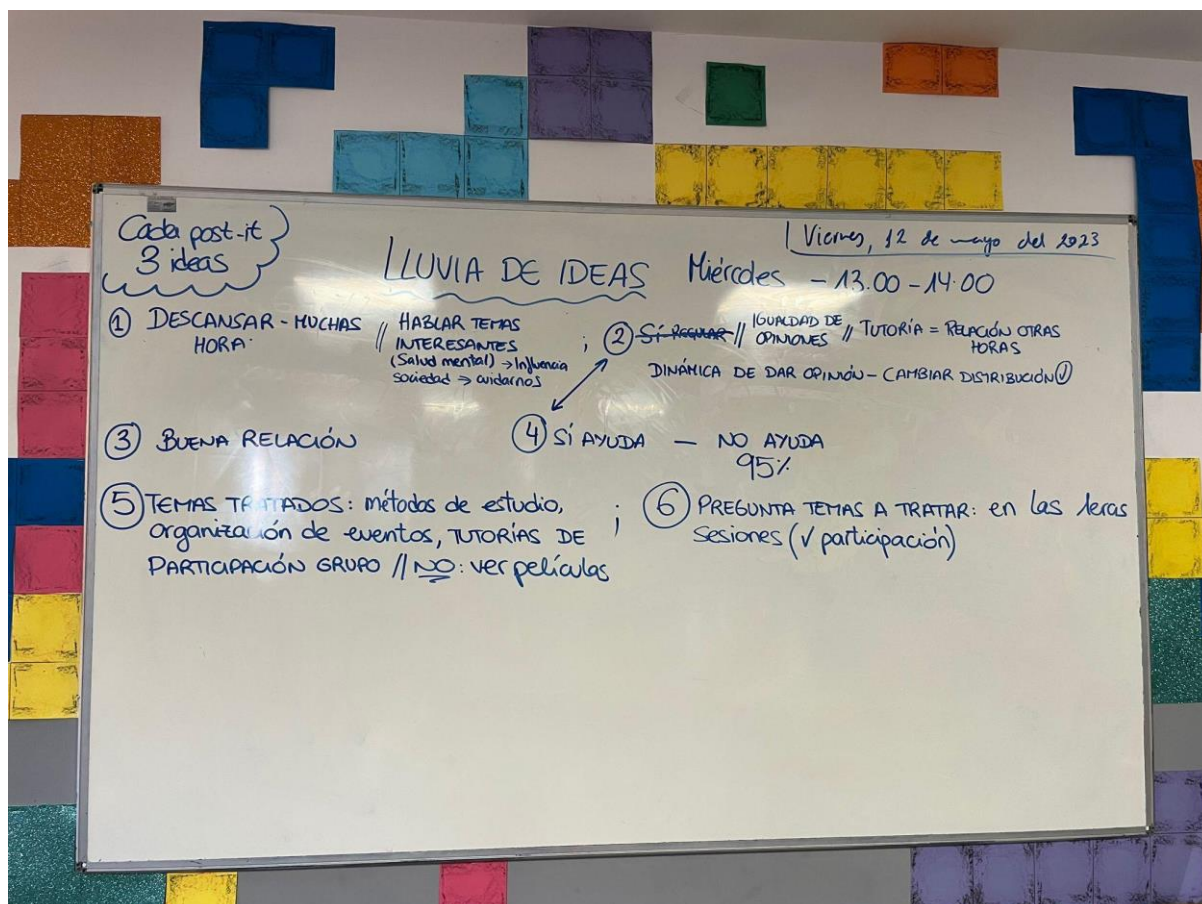 Cada post-it
3 ideas
Viernes, 12 de mayo del 2023
LLUVIA DE IDEAS
Miércoles - 13.00 - 14.00
① DESCANSAR - MUCHAS HORA // HABLAR TEMAS INTERESANTES
(Salud mental) → Influencia
sociedad → cuidarnos
; ② Sí REGULAR // IGUALDAD DE OPINIONES // TUTORÍA = RELACIÓN OTRAS HORAS
DINÁMICA DE DAR OPINIÓN - CAMBIAR DISTRIBUCIÓN
③ BUENA RELACIÓN
④ SÍ AYUDA - NO AYUDA
95%
⑤ TEMAS TRATADOS: métodos de estudio,
organización de eventos, TUTORÍAS DE
PARTICIPACIÓN GRUPO // NO: ver películas
; ⑥ PREGUNTA TEMAS A TRATAR: en las 1eras
sesiones (√ participación)